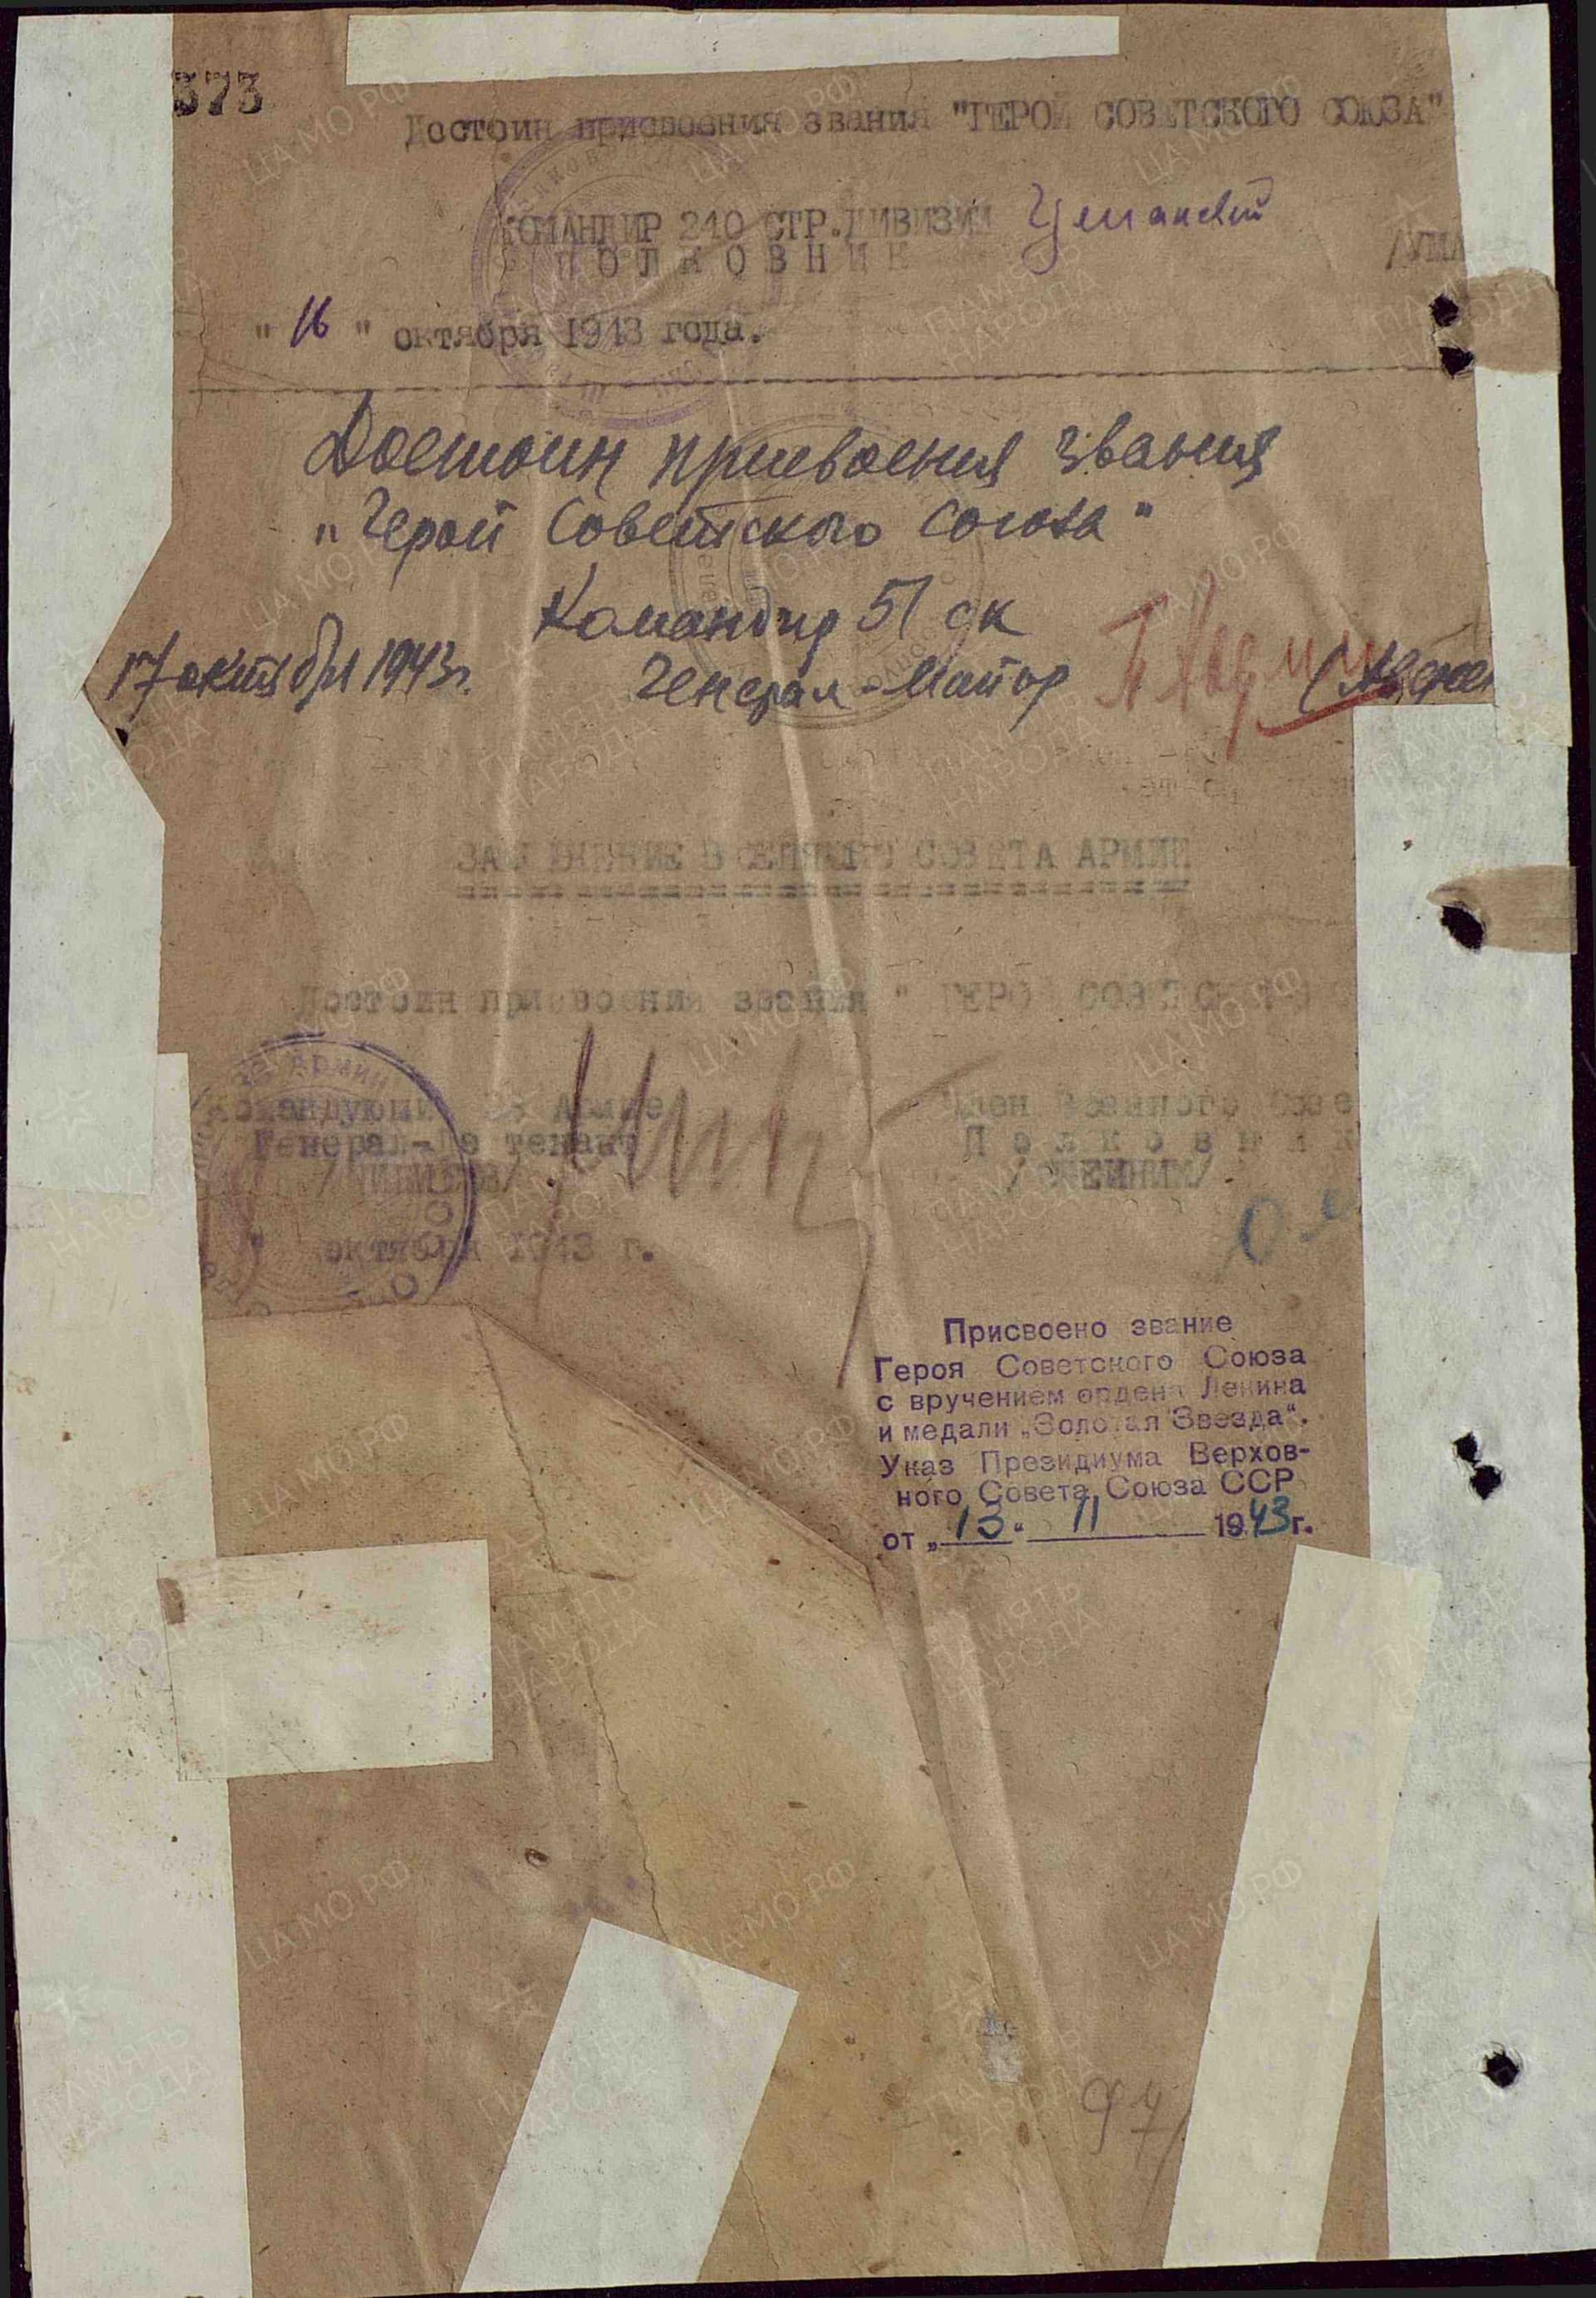 373
Достоин присвоения звания "ГЕРОЙ СОВЕТСКОГО СОЮЗА"
КОМАНДИР 240 СТР.ДИВИЗИИ
ПОЛКОВНИК
/УМА
"16" октября 1943 года.
Достоин присвоения звания
"Герой Советского Союза"
Командир 51 ск
17 октября 1943г. Генерал-Майор
ЗАКЛЮЧЕНИЕ ВОЕННОГО СОВЕТА АРМИИ
Достоин присвоения звания " ГЕРОЙ СОВЕТСК
Командующий 38 Армией Член Военного Сове
Генерал-Лейтенант Полковник
октября 1943 г.
Присвоено звание
Героя Советского Союза
с вручением ордена Ленина
и медали „Золотая Звезда".
Указ Президиума Верхов-
ного Совета Союза ССР
от „13" 11 1943г.
97
ЦА МО РФ
ПАМЯТЬ НАРОДА